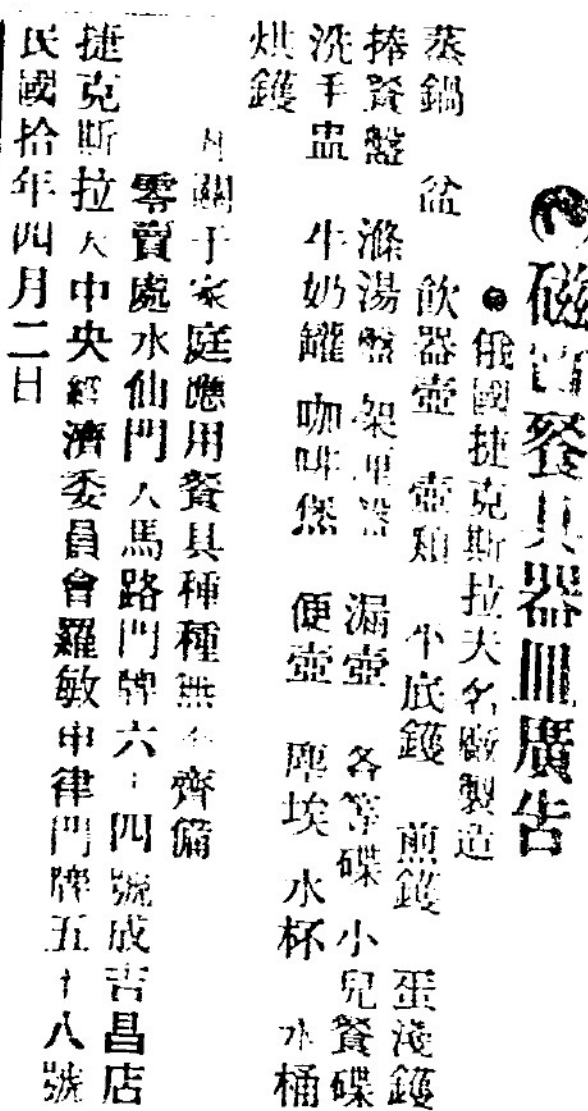 磁質餐具器皿廣告
俄國捷克斯拉夫名廠製造
蒸鍋 盆 飲器壺 壺類 平底鑊 煎鑊 蛋淺鑊
捧餐盤 滌湯盤 架厘 漏壺 各等碟 小兒餐碟
洗手盅 牛奶罐 咖啡煲 便壺 塵埃 水杯 水桶
烘鑊
凡關于家庭應用餐具種種無不齊備
零賣處水仙門大馬路門牌六十四號成吉昌店
捷克斯拉夫中央經濟委員會羅敏申律門牌五十八號
民國拾年四月二日